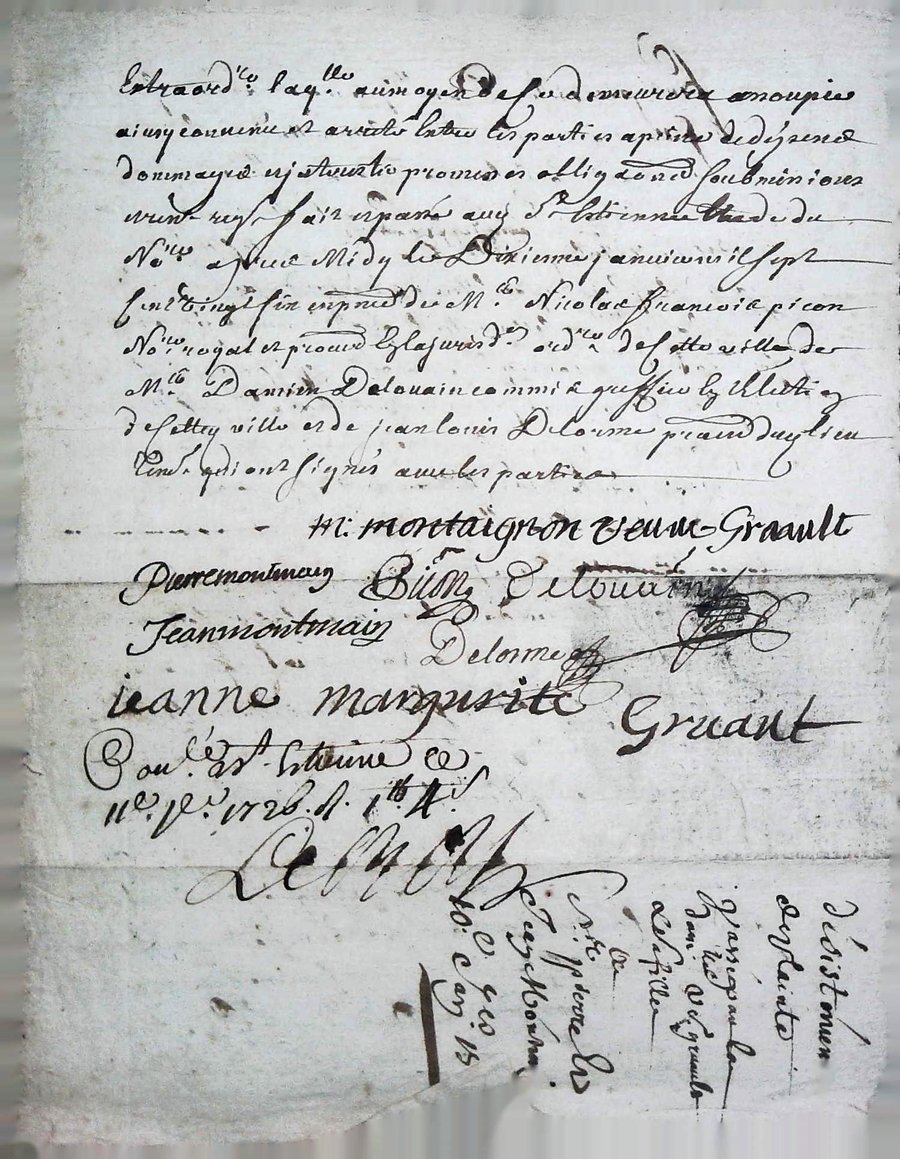 Extraord.re laq.lle aumoyen de ce demeurera assoupie
ainsy convenu et arreté Entre les parties a peine de depens
dommages interests promesses obligaons soubmissions
renon. fait et passé aud St Estienne Etude du
No.re apres Midy le Dixieme janvier mil sept
Cent Vingt six en pnce de M.e Nicolas francois picon
No.re royal et procu.r En la jurisd.on ord.re de Cette ville de
M.e Damien Delouain commis greffier En l'Election
de Cette ville et de jean louis Delorme pratid dud lieu
qui ont signés avec les parties
M: montaignon veuve Graault
Pierre montmain Picon Delouain
Jean montmain Delorme
jeanne margurite Gruant
Con.lé a St. Etienne ce
11.e j.er 1726. R. 1.lb 4.s
desistemen
de plainte
passé par la
dam. ve gruault
&c sa fille
de
Sr. pierre &
Jean Montm.
10.e janv.er